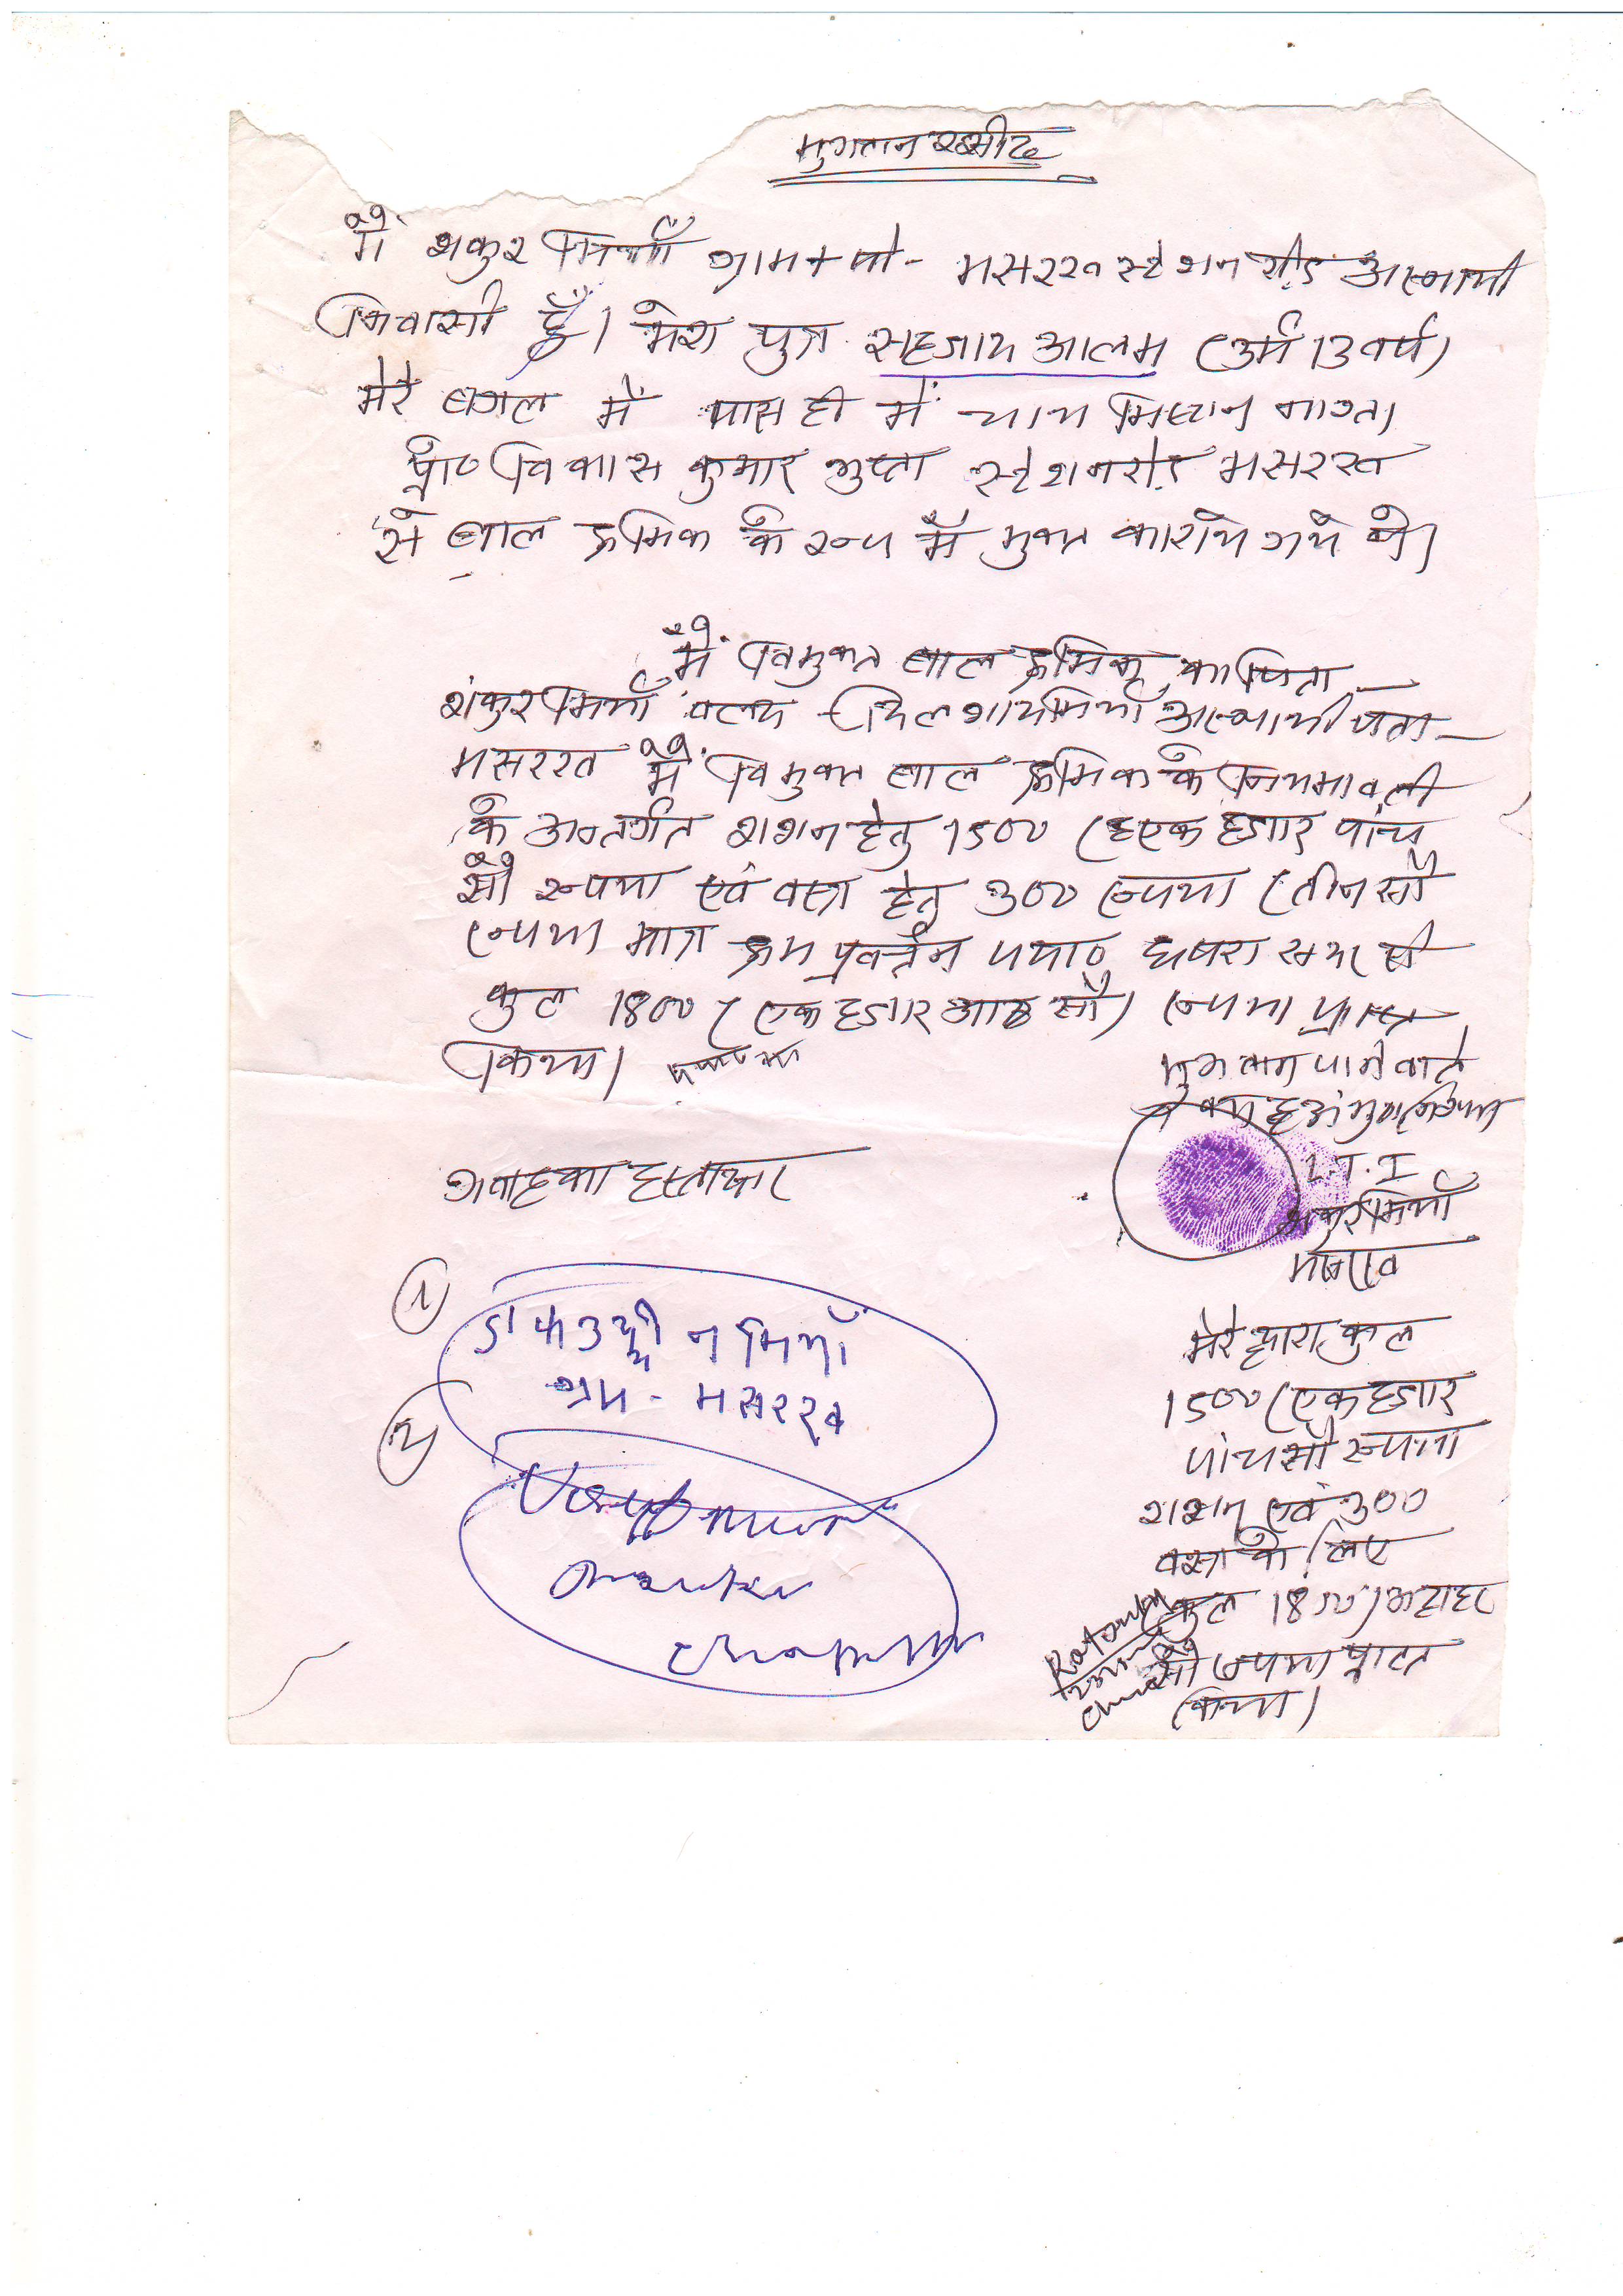 भुगतान रसीद
मैं शकुर मियाँ ग्राम+पो- मसरख स्टेशन रोड अस्थायी
निवासी हूँ। मेरा पुत्र सहजाद आलम (उर्म 13 वर्ष)
मेरे बगल में पास ही में चाय मिष्ठान नास्ता
प्रो० विकास कुमार गुप्ता स्टेशन रोड मसरख
से बाल श्रमिक के रूप में मुक्त कारोय गये थे।
मैं विमुक्त बाल श्रमिक का पिता
शंकुर मियाँ वल्द अस्थायी पता-
मसरख मैं विमुक्त बाल श्रमिक के नियमावली
के अन्तर्गत राशन हेतु 1500 (एक हजार पांच
सौ रूपया एवं वस्त्र हेतु 300 रूपया (तीन सौ
रूपया मात्र श्रम प्रवर्त्तन पदा० छपरा सदर से
कुल 1800 (एक हजार आठ सौ) रूपया प्राप्त
किया।
भुगतान पाने वाले
गवाह का हस्ताक्षर
L.T.I
शकुर मियाँ
मसरख
1
मियाँ
ग्राम - मसरख
2
मेरे द्वारा कुल
1500 (एक हजार
पांच सौ रूपया
राशन एवं 300
वस्त्र के लिए
कुल 1800) अठारह
सौ रूपया प्राप्त
किया।